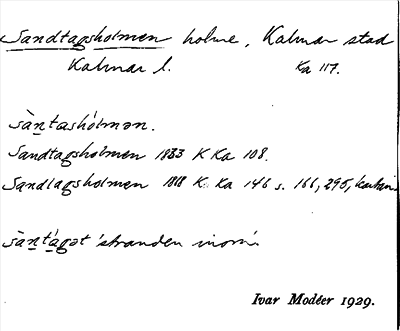 Sandtagsholmen holme, Kalmar stad
Kalmar l. Ka 117.
sàn̠tashólmən.
Sandtagsholmen 1883 K Ka 108.
Sandlagsholmen 1818 K. Ka 146 s. 166, 295,
sàn̠t'agət 'stranden inom'
Ivar Modéer 1929.